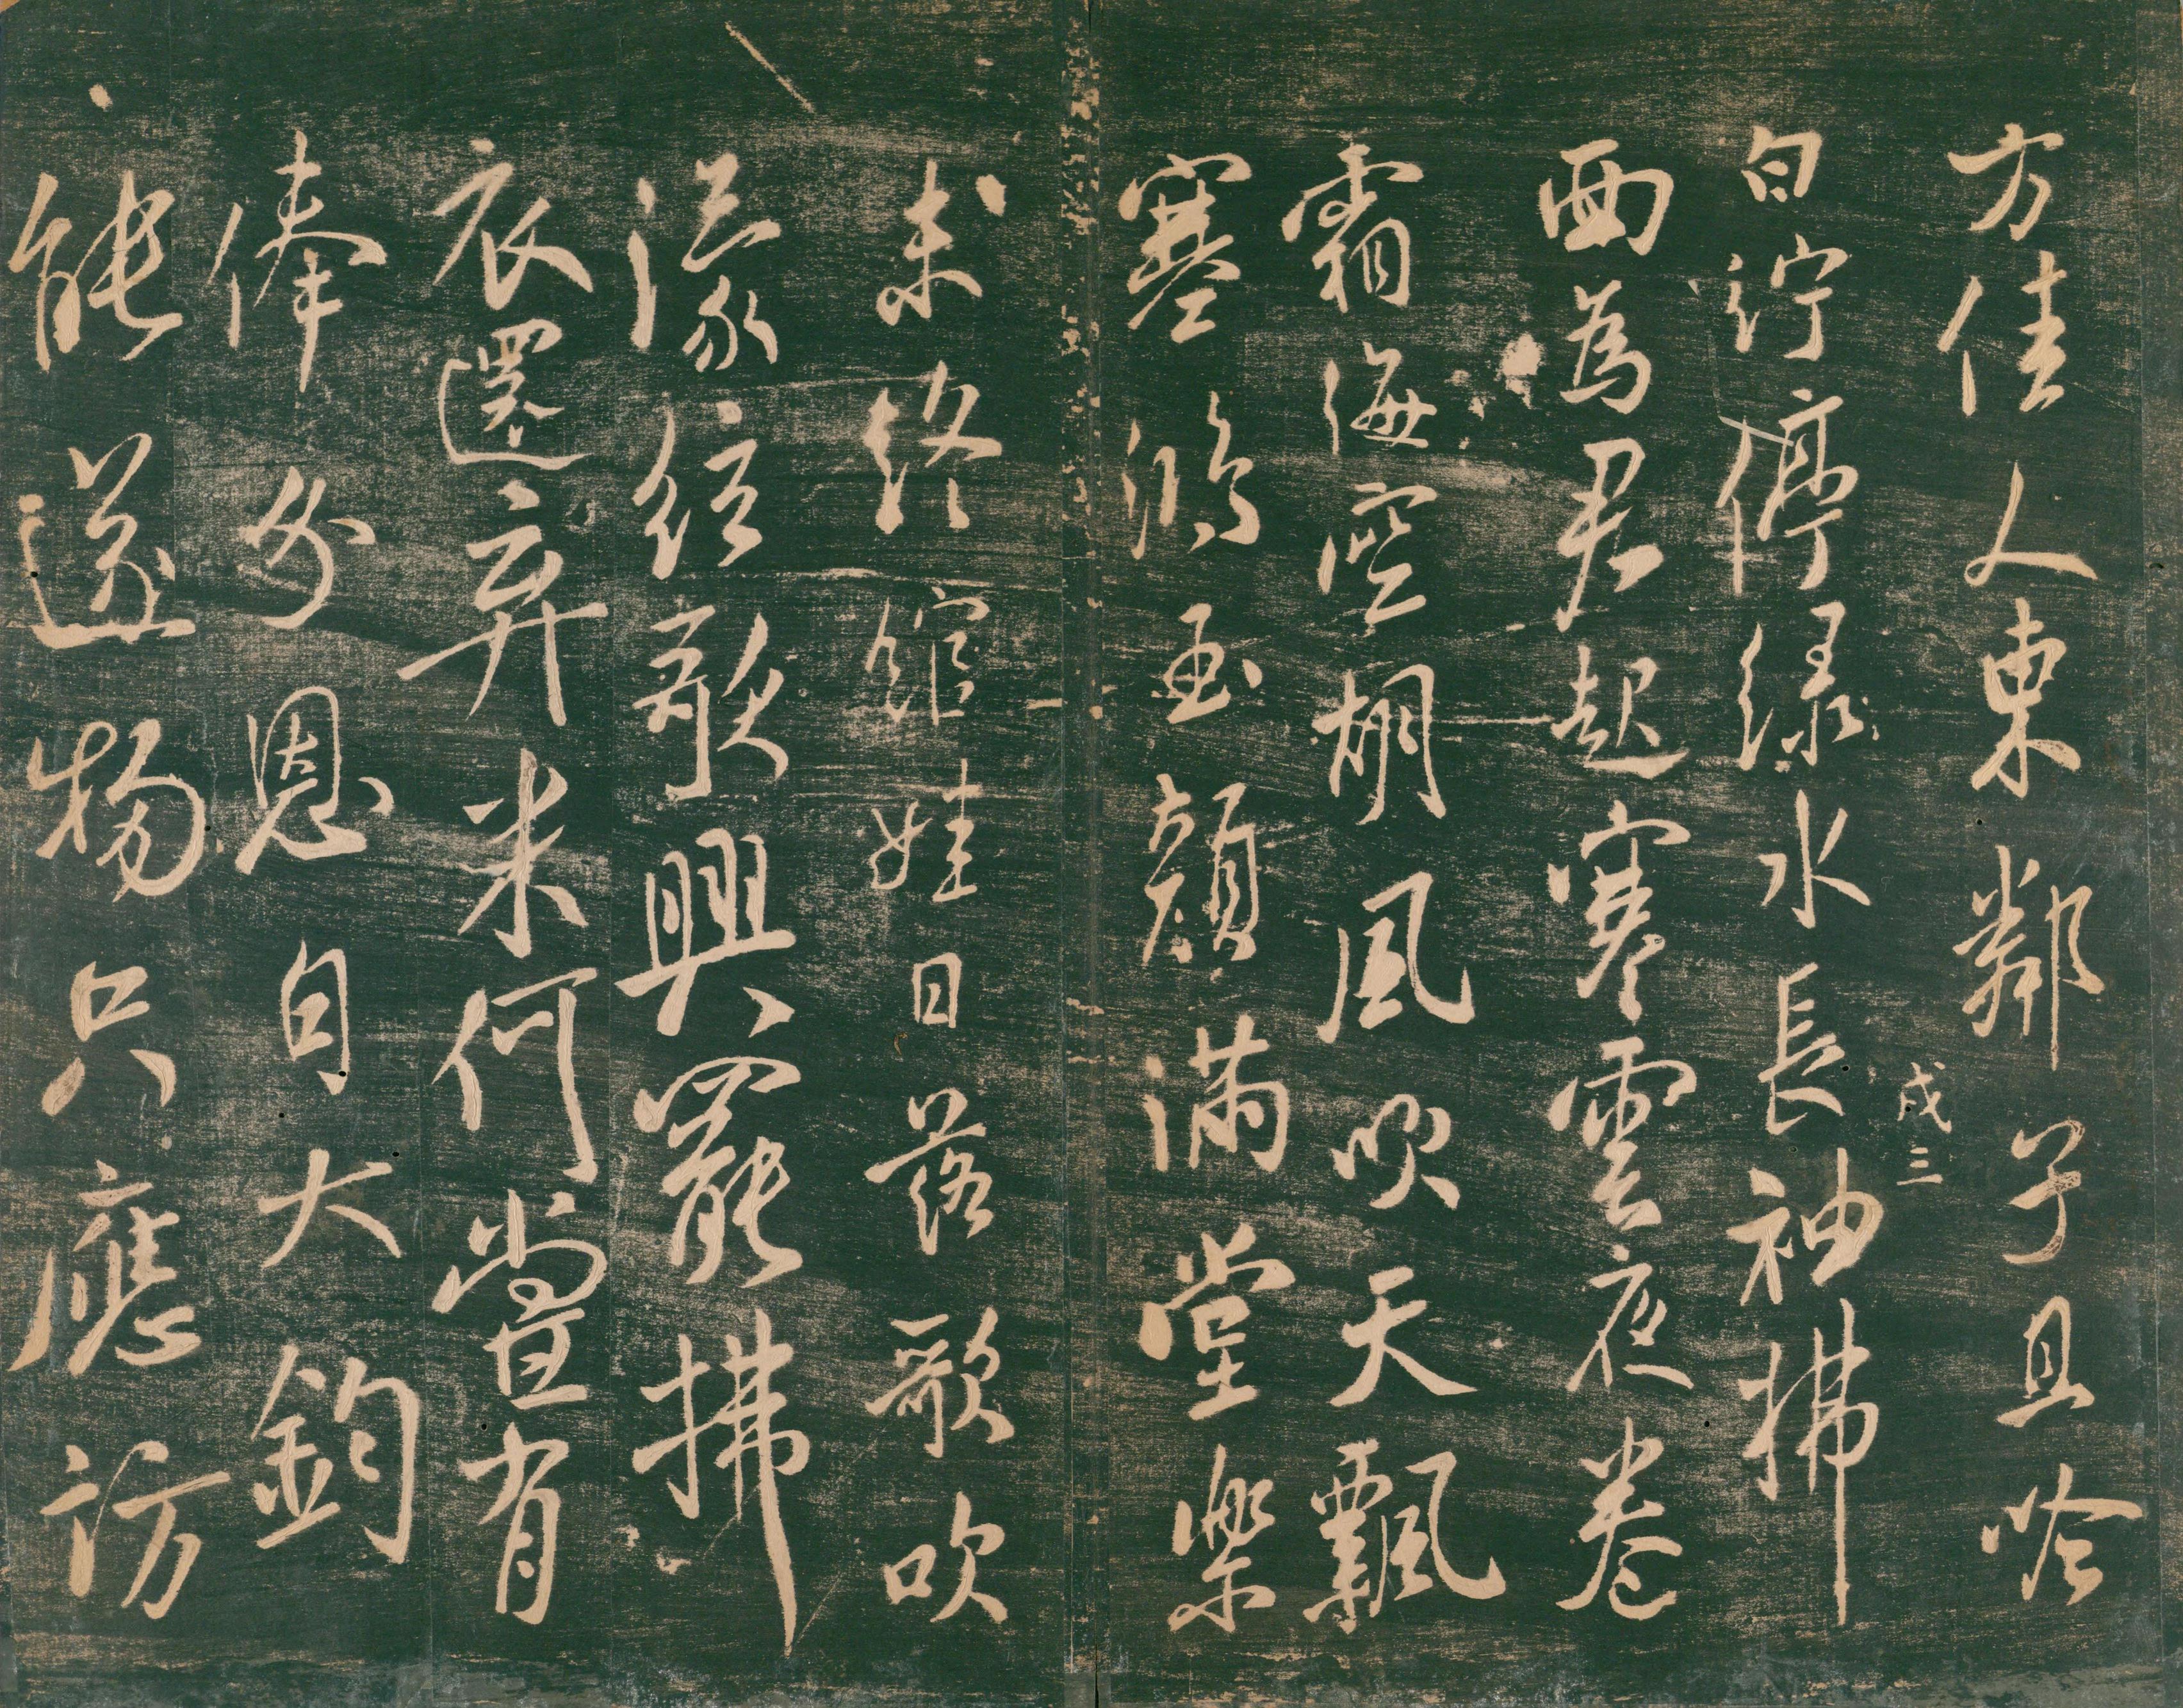 方佳人東鄰子且吟
戌三
白紵停綠水長袖拂
面為君起寒雲夜卷
霜海空胡風吹天飄
塞鴻玉顏滿堂樂
未終館娃日落歌吹
濛絃歌興罷拂
衣還弃米何嘗省
俸分恩自大鈞
能遂物只應訪